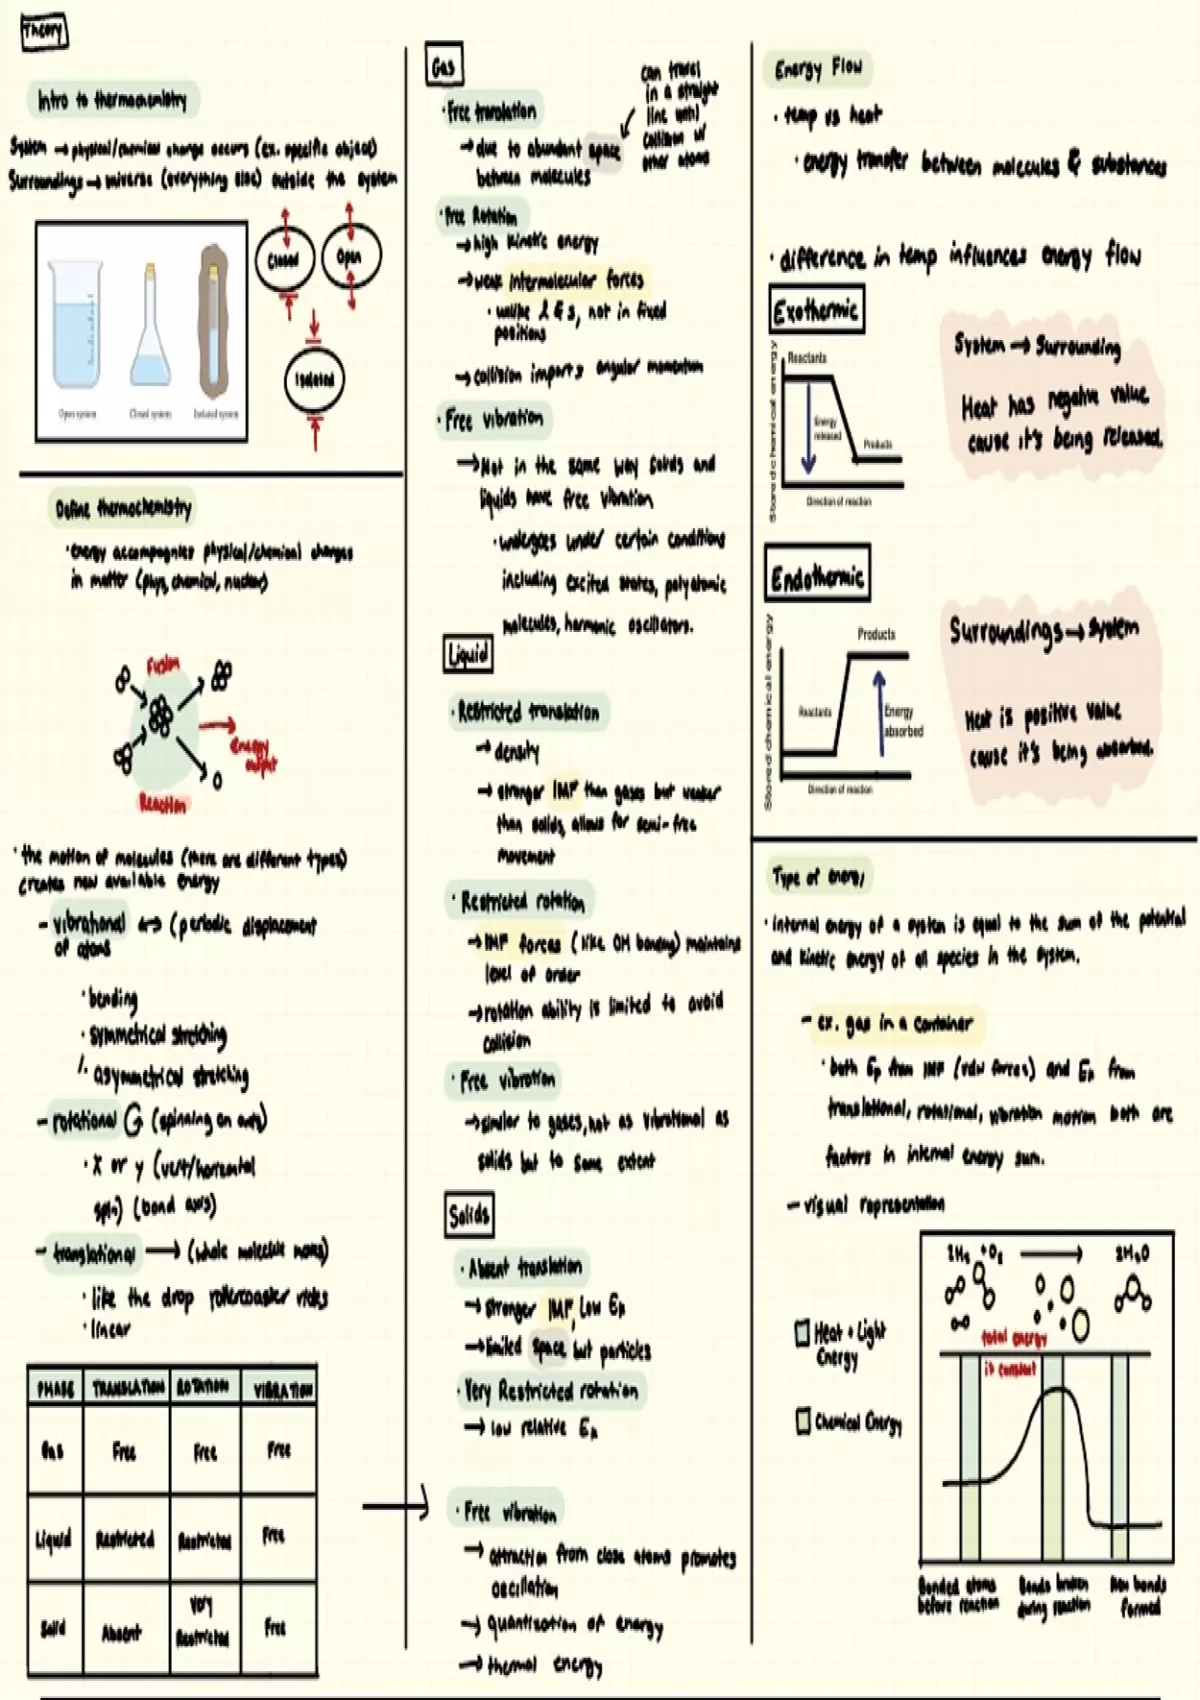 Theory
Intro to thermochemistry
System → physical/chemical change occurs (ex. specific object)
Surroundings → universe (everything else) outside the system
Open system
Closed system
Isolated system
Closed
Open
Isolated
Define thermochemistry
· energy accompagnies physical/chemical changes
in matter (phys, chemical, nuclear)
Fusion
Energy
output
Reaction
· the motion of molecules (there are different types)
creates new available energy
- vibrational ↔ (periodic displacement
of atoms
· bending
· symmetrical stretching
· asymmetrical stretching
- rotational (spinning on axis)
· X or y (vert/horizontal
spin) (bond axis)
- translational → (whole molecule moves)
· like the drop rollercoaster rides
· linear
PHASE TRANSLATION ROTATION VIBRATION
Gas Free Free Free
Liquid Restricted Restricted Free
Solid Absent Very Restricted Free
Gas
· Free translation
→ due to abundant space
between molecules
can travel
in a straight
line until
collision w/
other atoms
· Free Rotation
→ high kinetic energy
→ weak intermolecular forces
· unlike l & s, not in fixed
positions
→ collision imparts angular momentum
· Free vibration
→ Not in the same way solids and
liquids have free vibration
· undergoes under certain conditions
including excited states, polyatomic
molecules, harmonic oscillators.
Liquid
· Restricted translation
→ density
→ stronger IMF than gases but weaker
than solids, allows for semi-free
movement
· Restricted rotation
→ IMF forces (like OH bonding) maintains
level of order
→ rotation ability is limited to avoid
collision
· Free vibration
→ similar to gases, not as vibrational as
solids but to some extent
Solids
· Absent translation
→ stronger IMF, low Ek
→ limited space but particles
· Very Restricted rotation
→ low relative Ek
· Free vibration
→ attraction from close atoms promotes
oscillation
→ quantization of energy
→ thermal energy
Energy Flow
· temp vs heat
· energy transfer between molecules & substances
· difference in temp influences energy flow
Exothermic
Stored chemical energy
Reactants
Energy
released
Products
Direction of reaction
System → Surrounding
Heat has negative value
cause it's being released.
Endothermic
Stored chemical energy
Products
Reactants
Energy
absorbed
Direction of reaction
Surroundings → system
Heat is positive value
cause it's being absorbed.
Type of energy
· internal energy of a system is equal to the sum of the potential
and kinetic energy of all species in the system.
- ex. gas in a container
· both Ep from IMF (vdw forces) and Ek from
translational, rotational, vibration motion both are
factors in internal energy sum.
- visual representation
2H₂ + O₂ → 2H₂O
total energy
is constant
Heat + Light
Energy
Chemical Energy
Bonded atoms
before reaction
Bonds broken
during reaction
New bonds
formed